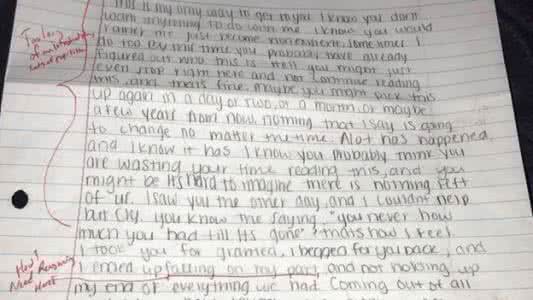 This is my only way to get to you I know you don't
want anything to do with me. I know you would
rather me just become nonexistent, sometimes I
do too. By this time you probably have already
figured out who this is. Hell you might just
even stop right here and not continue reading
this, and thats fine. maybe you might pick this
up again in a day or two, or a month, or maybe
a few years from now, nothing that I say is going
to change no matter the time. Alot has happened,
and I know it has. I know you probably think you
are wasting your time reading this, and you
might be Its hard to imagine there is nothing left
of "us. I saw you the other day, and I couldnt help
but cry. you know the saying, "you never how
much you had till its gone" thats how I feel.
I took you for granted, I begged for you back, and
I ended up falling on my part, and not holding up
my end of everything we had. Coming out of all
lots of repetition
How?
Reasoning
Need More